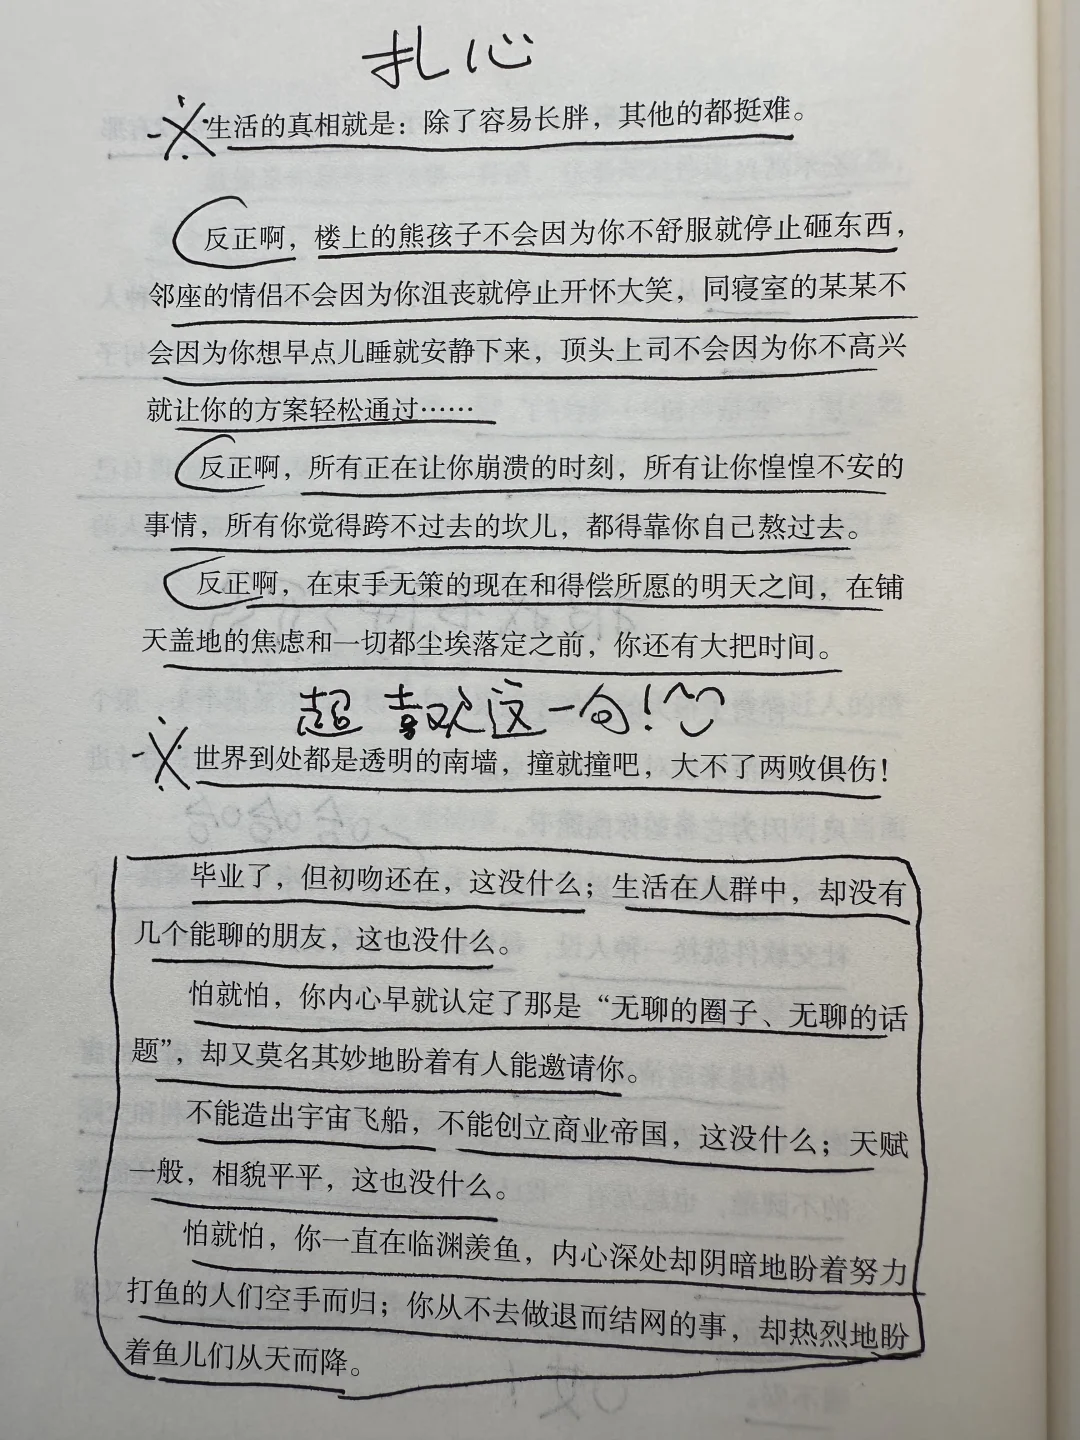 扎心
生活的真相就是：除了容易长胖，其他的都挺难。
反正啊，楼上的熊孩子不会因为你不舒服就停止砸东西，
邻座的情侣不会因为你沮丧就停止开怀大笑，同寝室的某某不
会因为你想早点儿睡就安静下来，顶头上司不会因为你不高兴
就让你的方案轻松通过……
反正啊，所有正在让你崩溃的时刻，所有让你惶惶不安的
事情，所有你觉得跨不过去的坎儿，都得靠你自己熬过去。
反正啊，在束手无策的现在和得偿所愿的明天之间，在铺
天盖地的焦虑和一切都尘埃落定之前，你还有大把时间。
超喜欢这一句！
世界到处都是透明的南墙，撞就撞吧，大不了两败俱伤！
毕业了，但初吻还在，这没什么；生活在人群中，却没有
几个能聊的朋友，这也没什么。
怕就怕，你内心早就认定了那是“无聊的圈子、无聊的话
题”，却又莫名其妙地盼着有人能邀请你。
不能造出宇宙飞船，不能创立商业帝国，这没什么；天赋
一般，相貌平平，这也没什么。
怕就怕，你一直在临渊羡鱼，内心深处却阴暗地盼着努力
打鱼的人们空手而归；你从不去做退而结网的事，却热烈地盼
着鱼儿们从天而降。